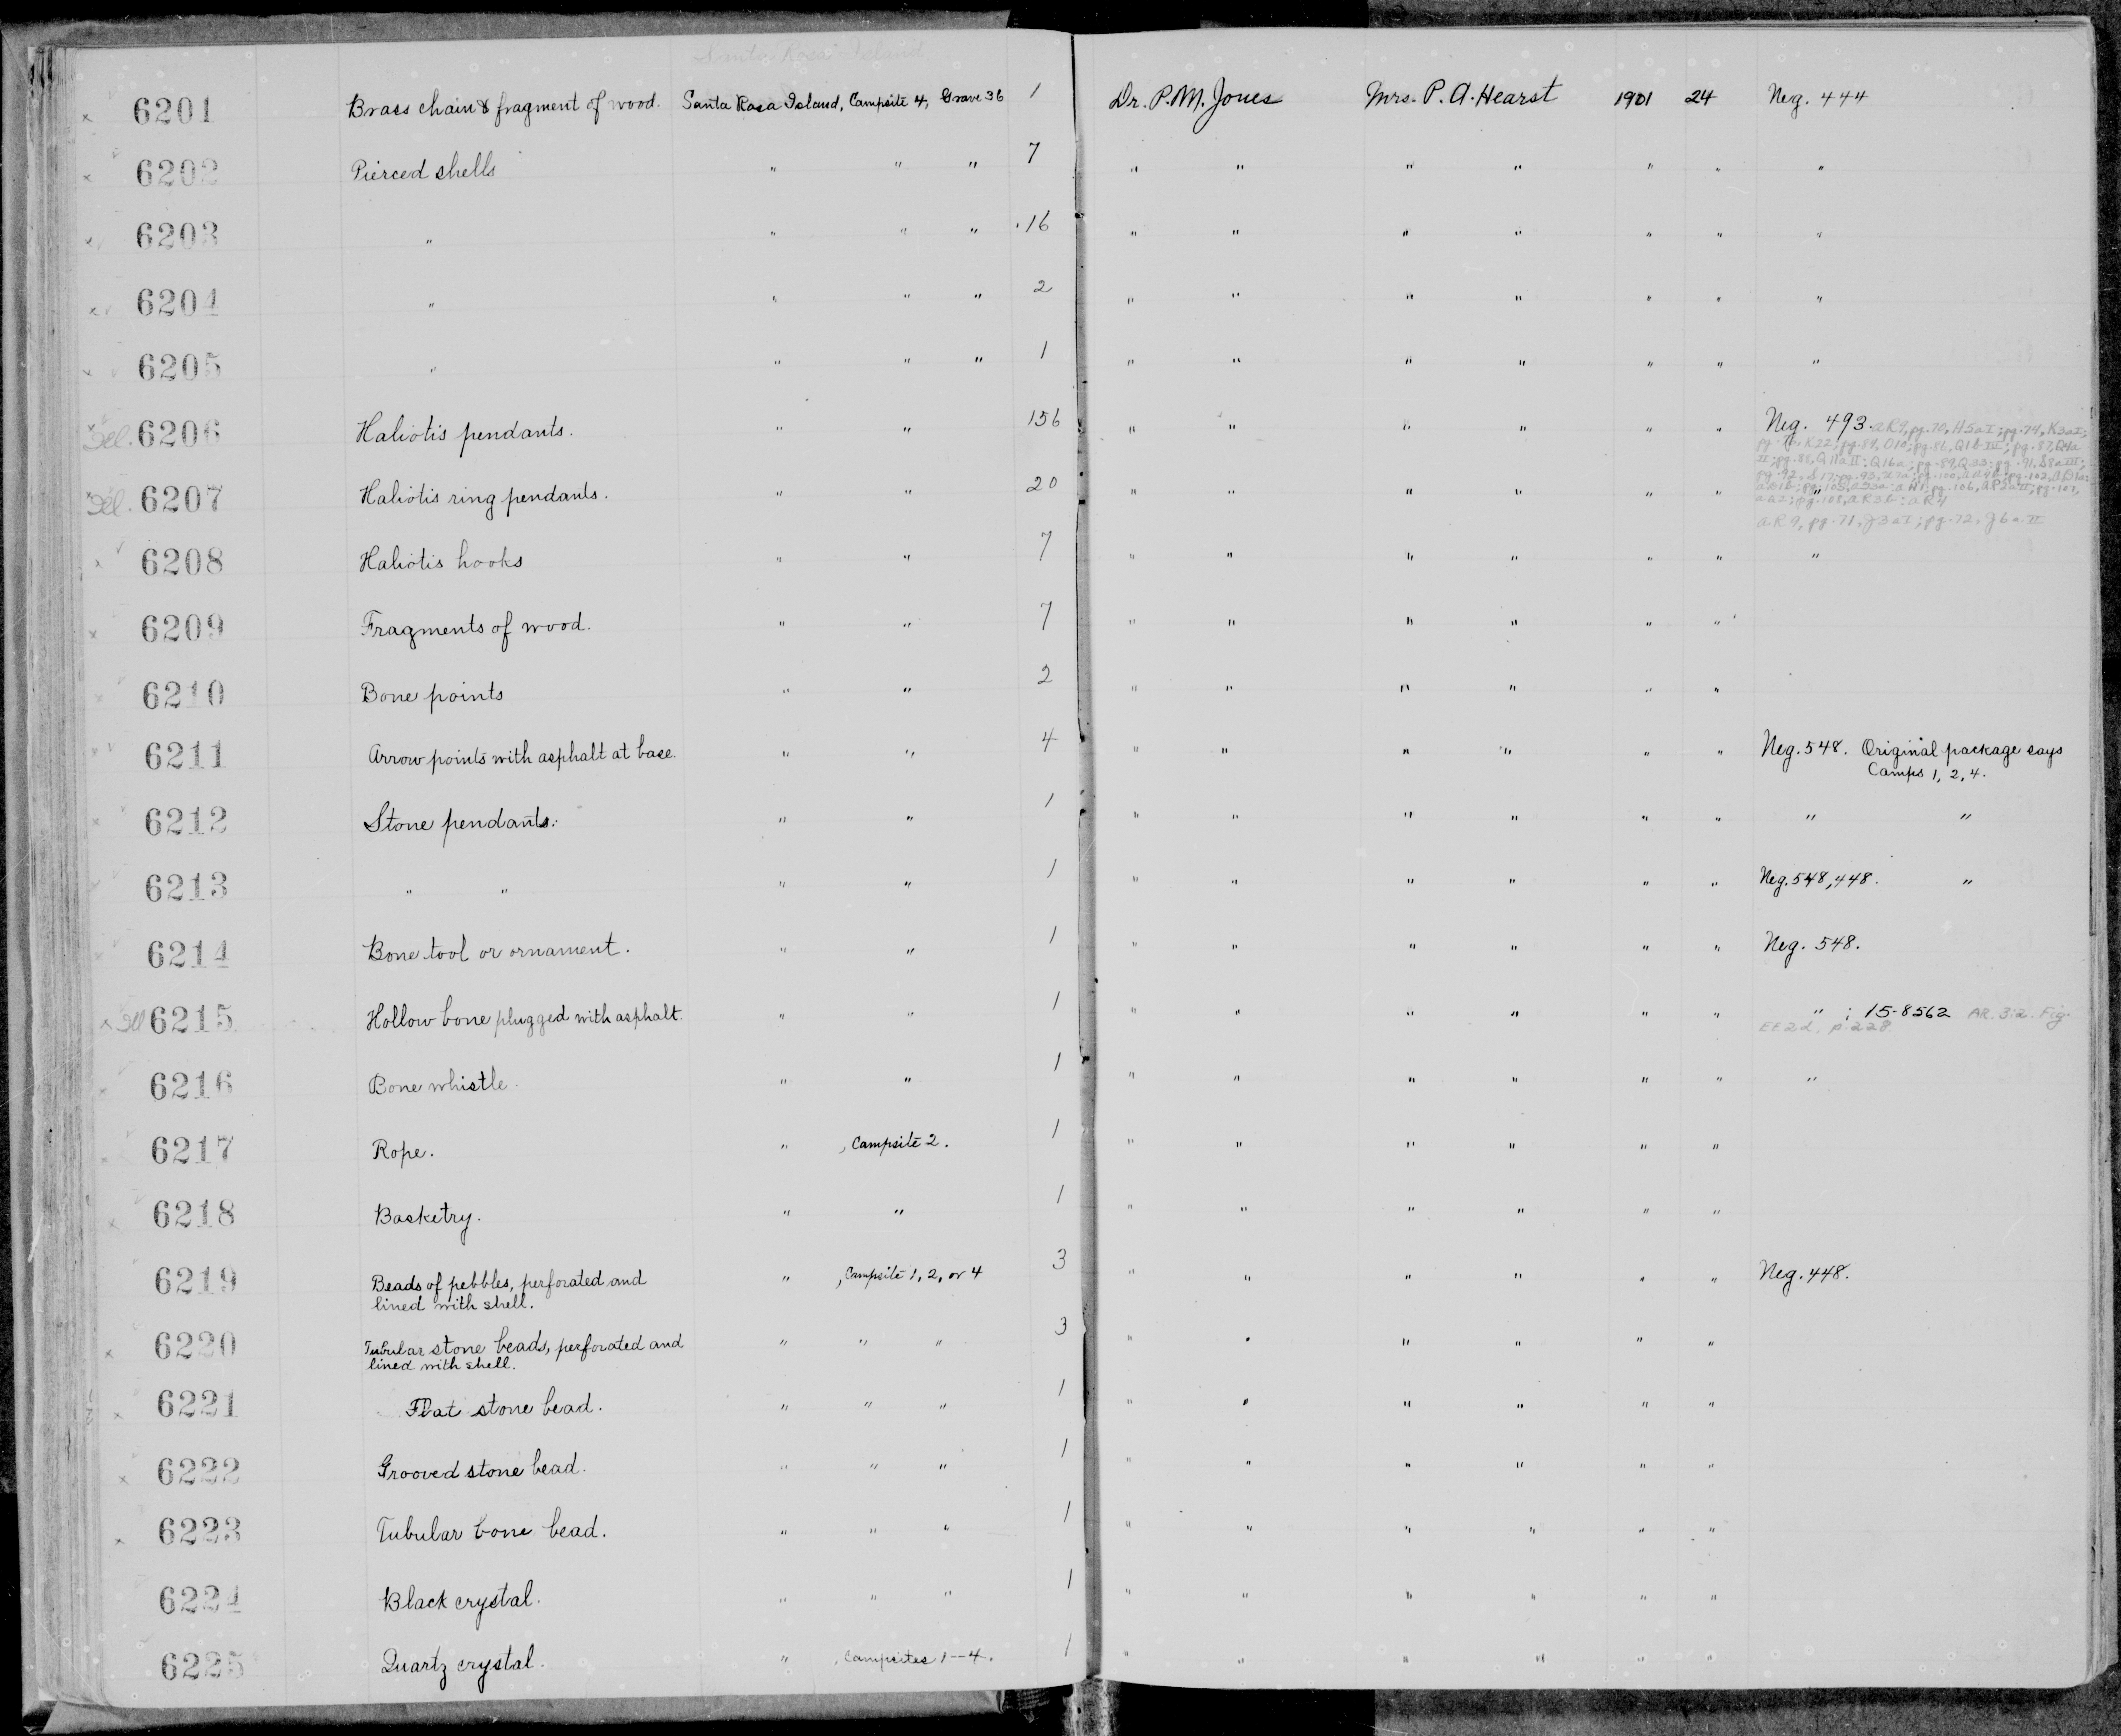 Santa Rosa Island
6201 Brass chain & fragment of wood. Santa Rosa Island, Campsite 4, Grave 36 1 Dr. P. M. Jones Mrs. P. A. Hearst 1901 24 Neg. 444
6202 Pierced shells " " " 7 " " " " " " "
6203 " " " " 16 " " " " " " "
6204 " " " " 2 " " " " " " "
6205 " " " " 1 " " " " " " "
Ill. 6206 Haliotis pendants. " " 156 " " " " " " Neg. 493. AR9, pg. 70, H5aI; pg. 74, K3aI;
K22; pg. 84, O10; pg. 86, Q1b IV; pg. 87, Q4a
II; pg. 88, Q11aII; Q16a; pg. 89, Q33; pg. 91, S8a III;
Ill. 6207 Haliotis ring pendants. " " 20 " " " " " " "
AR9, pg. 71, J3aI; pg. 72, J6a II
6208 Haliotis hooks " " 7 " " " " " " "
6209 Fragments of wood. " " 7 " " " " " "
6210 Bone points " " 2 " " " " " "
6211 Arrow points with asphalt at base. " " 4 " " " " " " Neg. 548. Original package says
Camps 1, 2, 4.
6212 Stone pendants. " " 1 " " " " " " " "
6213 " " " " 1 " " " " " " Neg. 548, 448. "
6214 Bone tool or ornament. " " 1 " " " " " " Neg. 548.
Ill 6215 Hollow bone plugged with asphalt. " " 1 " " " " " " " ; 15-8562 AR. 3:2. Fig.
EE2d, p. 228
6216 Bone whistle. " " 1 " " " " " " "
6217 Rope. " , Campsite 2. 1 " " " " " "
6218 Basketry. " " 1 " " " " " "
6219 Beads of pebbles, perforated and " , Campsite 1, 2, or 4 3 " " " " " " Neg. 448.
lined with shell.
6220 Tubular stone beads, perforated and " " " 3 " " " " " "
lined with shell.
6221 Flat stone bead. " " " 1 " " " " " "
6222 Grooved stone bead. " " " 1 " " " " " "
6223 Tubular bone bead. " " " 1 " " " " " "
6224 Black crystal. " " " 1 " " " " " "
6225 Quartz crystal. " , Campsites 1–4. 1 " " " " " "